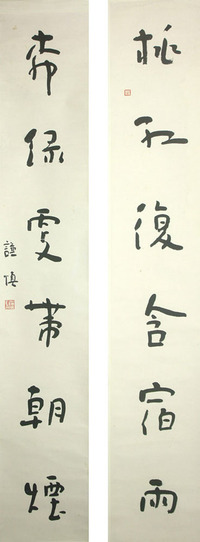 桃紅復含宿雨
柳綠更帶朝煙
謙慎